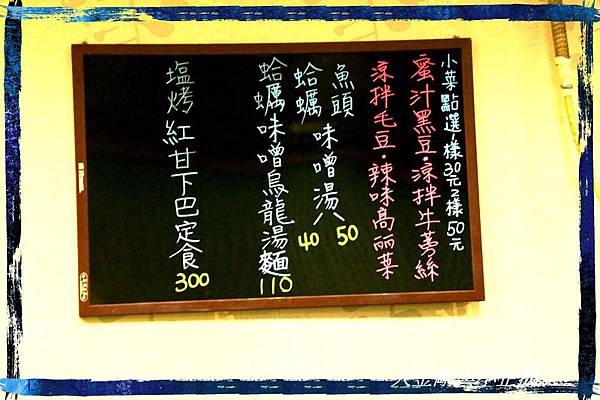 小菜點選1樣30元2樣50元
蜜汁黑豆·涼拌牛蒡絲
涼拌毛豆·辣味高丽菜
魚頭
蛤蠣味噌湯
50
40
蛤蠣味噌烏龍湯麵
110
塩烤紅甘下巴定食
300